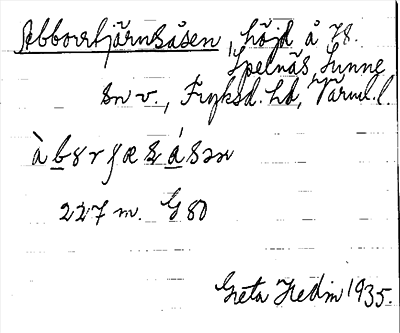 Abborrtjärnsåsen, höjd å 78.
Spelnäs, Sunne
sn v., Fryksd. hd, Värml. l.
227 m. G 80
Greta Hedin 1935.